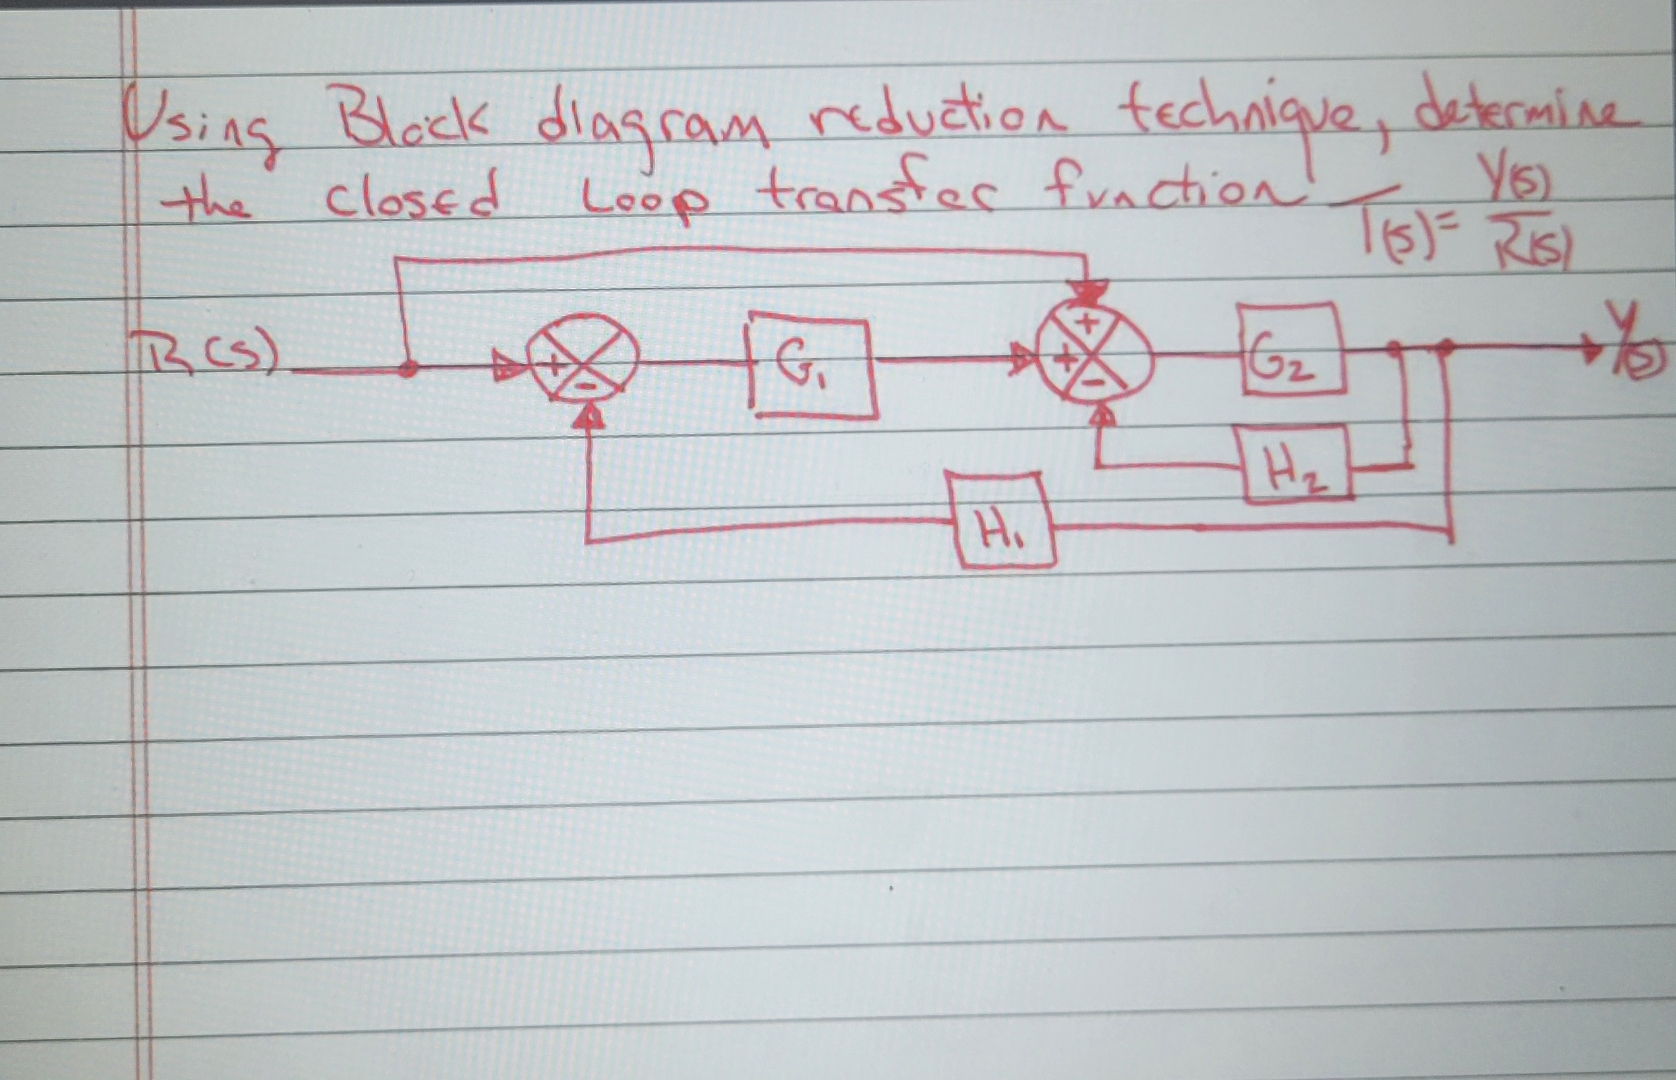 Using Block diagram reduction technique, determine
the closed Loop transfer function T(s)= Y(s)/R(s)
R(s)
+
-
G1
+
+
-
G2
Y(s)
H2
H1